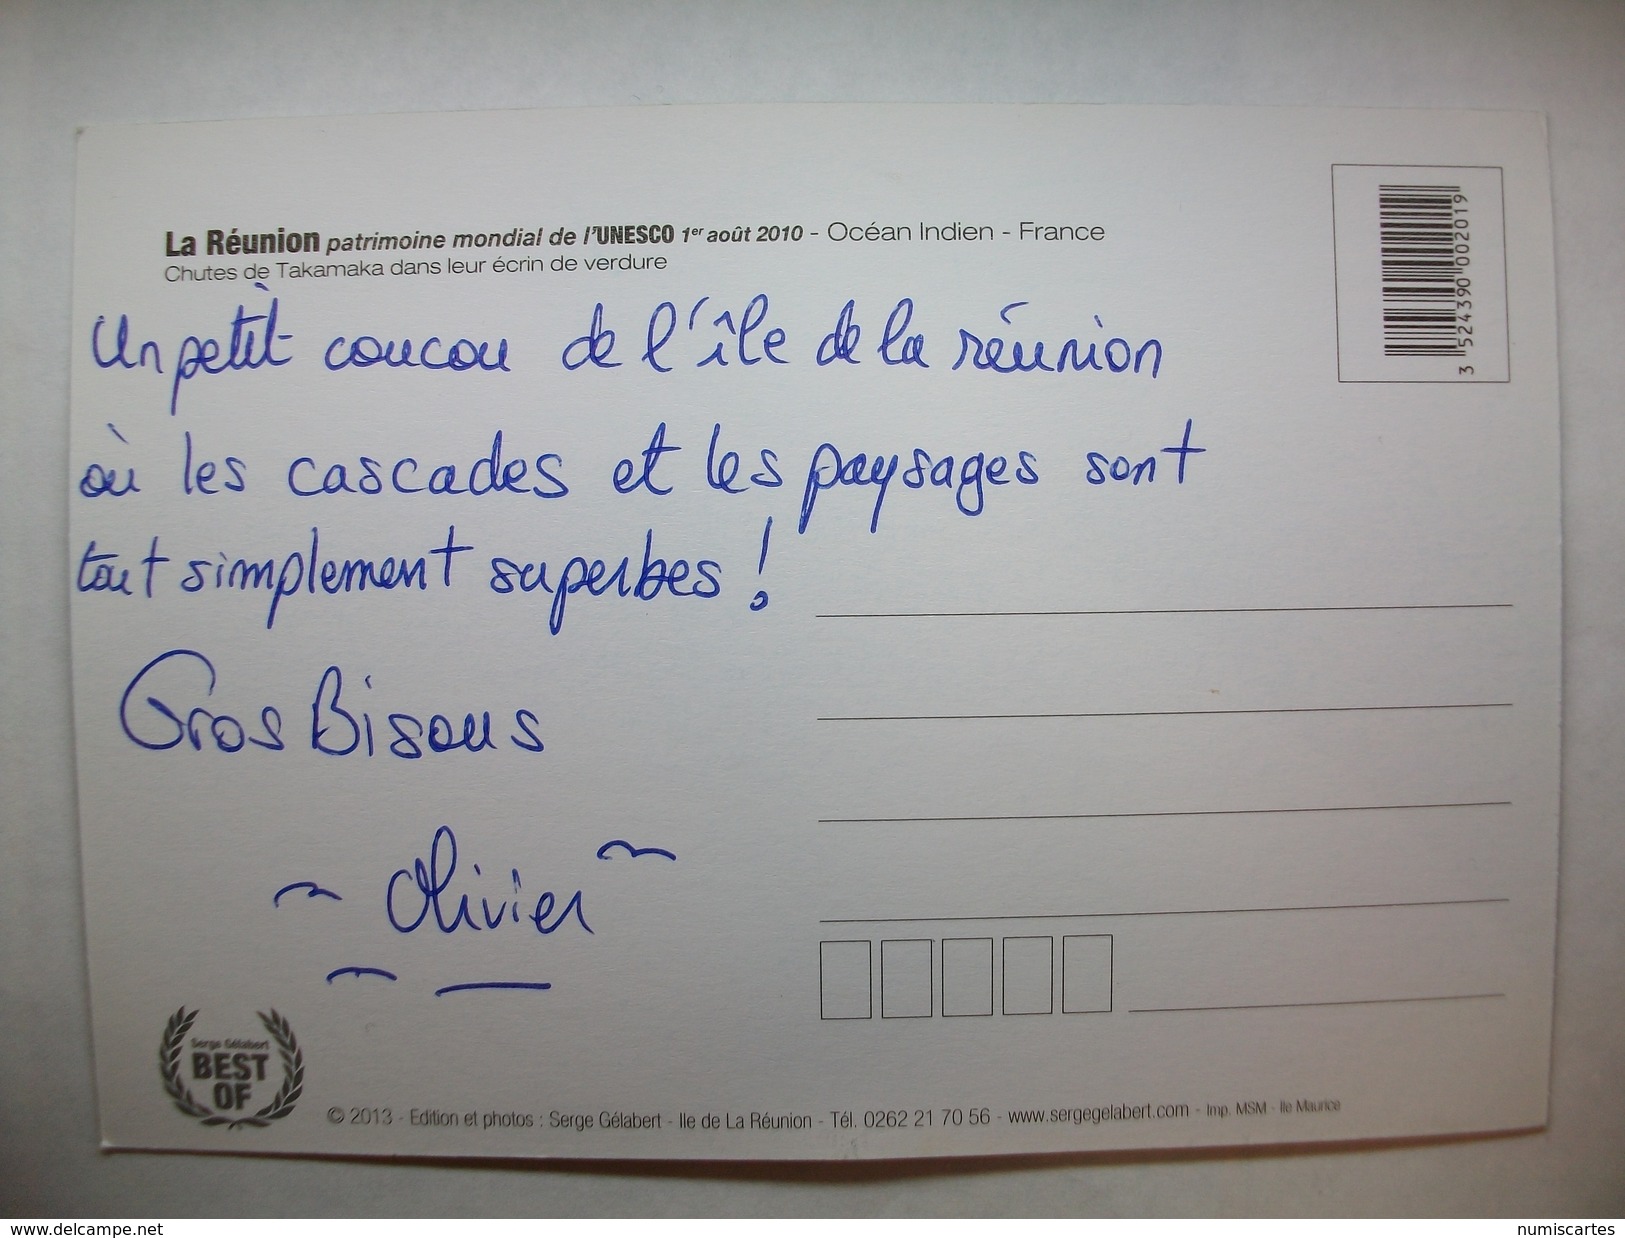 La Réunion patrimoine mondial de l'UNESCO 1er août 2010 - Océan Indien - France
Chutes de Takamaka dans leur écrin de verdure
3 524390 002019
Un petit coucou de l'île de la réunion
où les cascades et les paysages sont
tout simplement superbes !
Gros Bisous
~ Olivier ~
Serge Gélabert
BEST
OF
© 2013 - Edition et photos : Serge Gélabert - Ile de La Réunion - Tél. 0262 21 70 56 - www.sergegelabert.com - Imp. MSM - Ile Maurice
www.delcampe.net
numiscartes